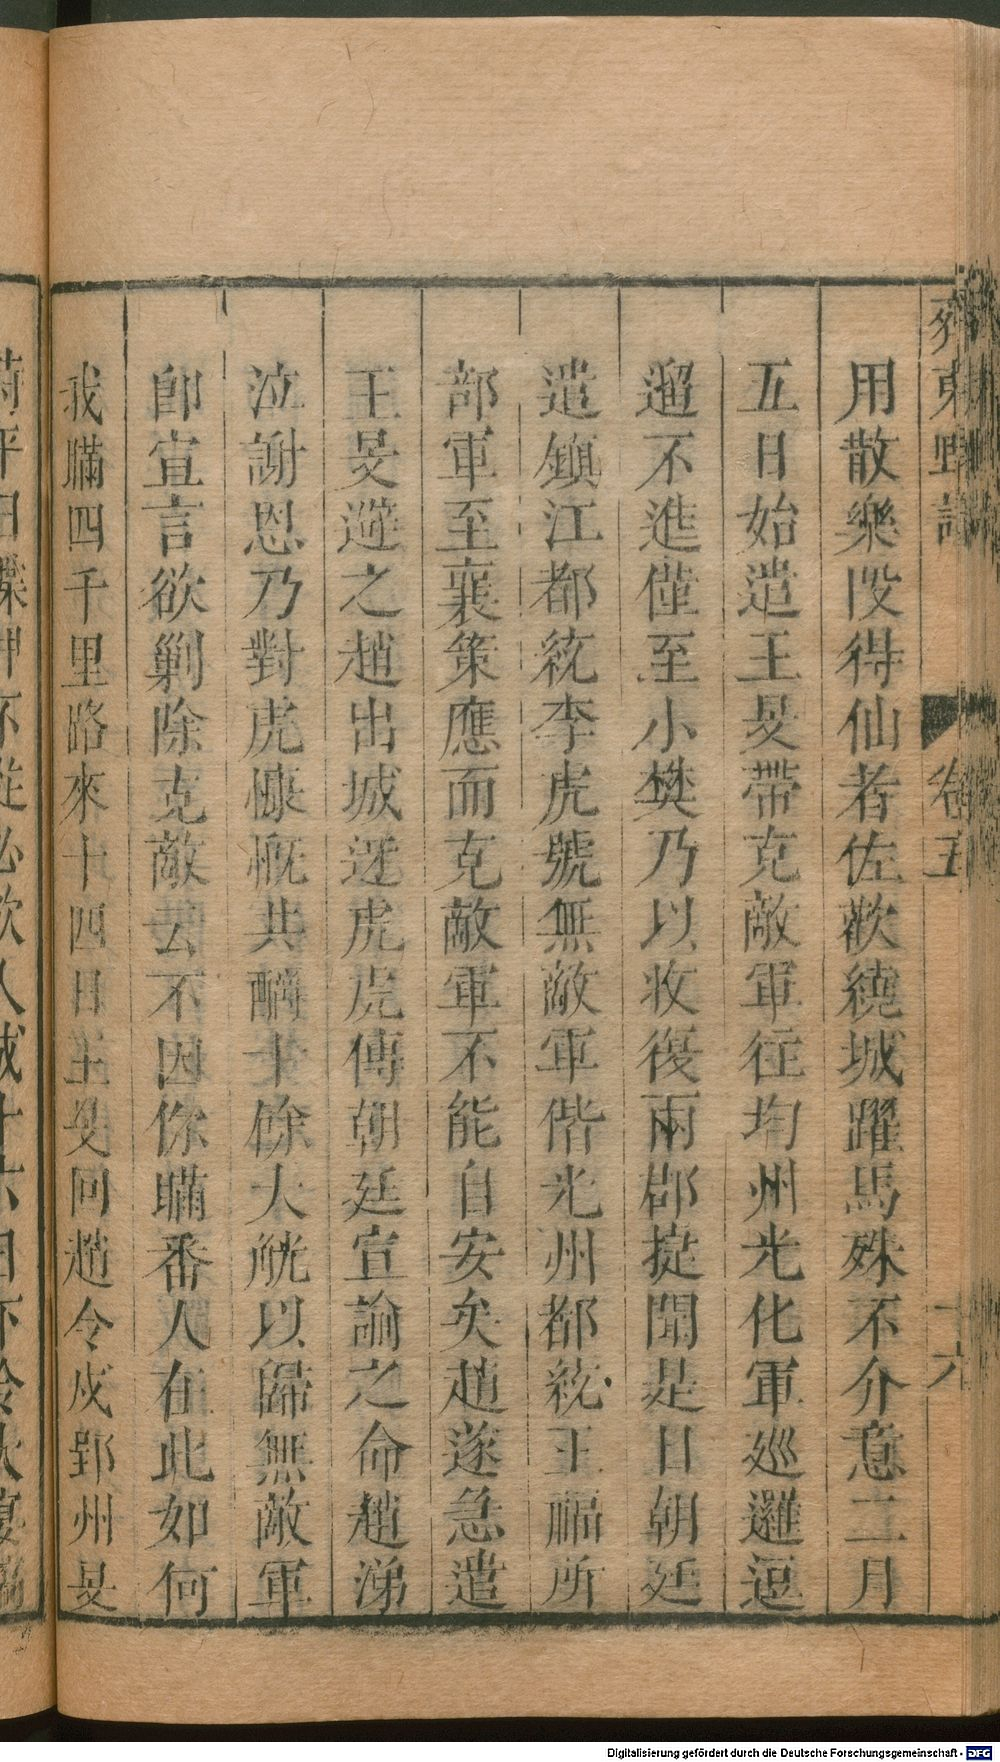 齊東野語 卷五 十六
用散樂叚得仙者佐歡繞城躍馬殊不介意二月
五日始遣王旻帶克敵軍徃均州光化軍廵邏逗
遛不進僅至小樊乃以收復兩郡㨗聞是日朝廷
遣鎭江都統李虎號無敵軍偕光州都統王福所
部軍至襄策應而克敵軍不能自安矣趙遂急遣
王旻避之趙出城迓虎虎傳朝廷宣諭之命趙涕
泣謝恩乃對虎慷慨共酹十餘大觥以歸無敵軍
卽宣言欲剿除克敵去不因你瞞番人在此如何
我瞞四千里路來十四日王旻回趙令戍郢州旻
Digitalisierung gefördert durch die Deutsche Forschungsgemeinschaft - DFG